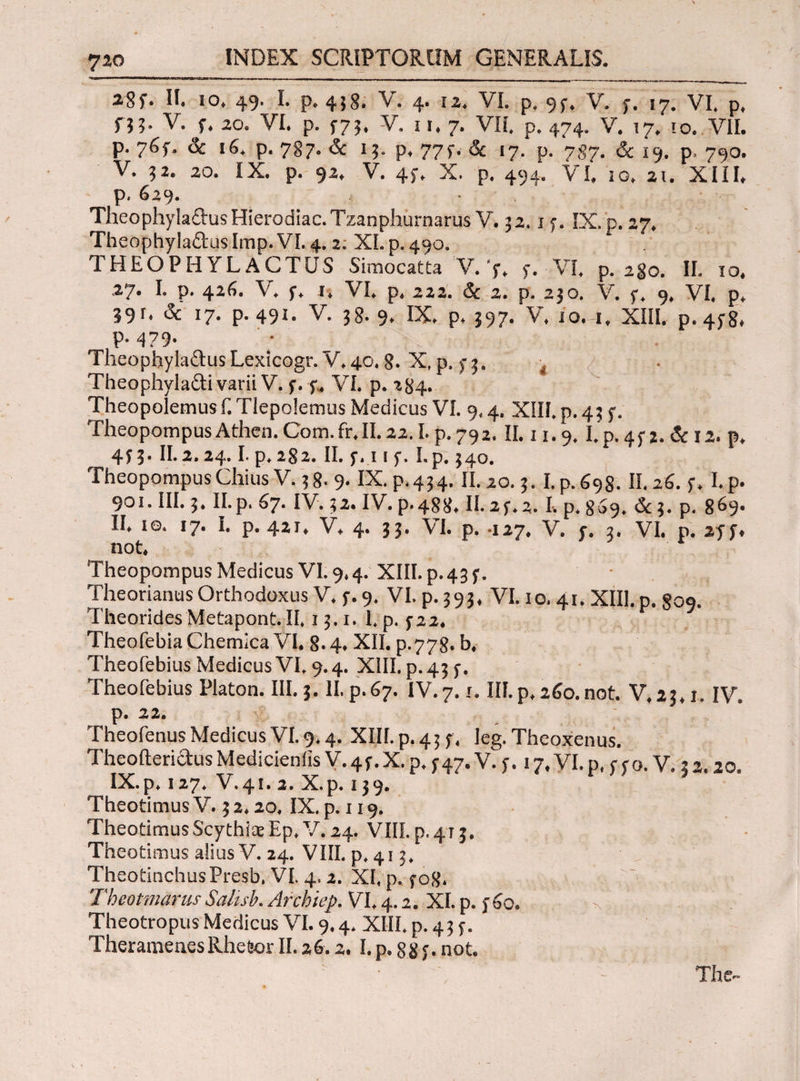 720 INDEX SCRIPTORUM GENERALIS.
285. II. 10. 49. I. p. 438. V. 4. 12. VI. p. 95. V. 5. 17. VI. p.
533. V. 5. 20. VI. p. 573. V. 11. 7. VII. p. 474. V. 17. 10. VII.
p. 765. & 16. p. 787. & 13. p. 775. & 17. p. 787. & 19. p. 790.
V. 32. 20. IX. p. 92. V. 45. X. p. 494. VI. 10. 21. XIII.
p. 629.
Theophylactus Hierodiac. Tzanphurnarus V. 32. 15. IX. p. 27.
Theophylactus Imp. VI. 4. 2. XI. p. 490.
THEOPHYLACTUS Simocatta V. 5. 5. VI. p. 280. II. 10.
27. I. p. 426. V. 5. 1. VI. p. 222. & 2. p. 230. V. 5. 9. VI. p.
391. & 17. p. 491. V. 38. 9. IX. p. 397. V. 10. 1. XIII. p. 458.
p. 479.
Theophylactus Lexicogr. V. 40. 8. X. p. 53.
Theophylacti varii V. 5. 5. VI. p. 284.
Theopolemus f. Tlepolemus Medicus VI. 9. 4. XIII. p. 435.
Theopompus Athen. Com. fr. II. 22. I. p. 792. II. 11. 9. I. p. 452. & 12. p.
453. II. 2. 24. I. p. 282. II. 5. 115. I. p. 340.
Theopompus Chius V. 38. 9. IX. p. 434. II. 20. 3. I. p. 698. II. 26. 5. I. p.
901. III. 3. II. p. 67. IV. 32. IV. p. 488. II. 25. 2. I. p. 869. & 3. p. 869.
II. 10. 17. I. p. 421. V. 4. 33. VI. p. 127. V. 5. 3. VI. p. 255.
not.
Theopompus Medicus VI. 9. 4. XIII. p. 435.
Theorianus Orthodoxus V. 5. 9. VI. p. 393. VI. 10. 41. XIII. p. 809.
Theorides Metapont. II. 13. 1. I. p. 522.
Theosebia Chemica VI. 8. 4. XII. p. 778. b.
Theosebius Medicus VI. 9. 4. XIII. p. 435.
Theosebius Platon. III. 3. II. p. 67. IV. 7. 1. III. p. 260. not. V. 23. 1. IV.
p. 22.
Theosenus Medicus VI. 9. 4. XIII. p. 435. leg. Theoxenus.
Theosterictus Medicienfis V. 45. X. p. 547. V. 5. 17. VI. p. 550. V. 32. 20.
IX. p. 127. V. 41. 2. X. p. 139.
Theotimus V. 32. 20. IX. p. 119.
Theotimus Scythiæ Ep. V. 24. VIII. p. 413.
Theotimus alius V. 24. VIII. p. 413.
Theotinchus Presb. VI. 4. 2. XI. p. 508.
Theotmarus Salisb. Archiep. VI. 4. 2. XI. p. 560.
Theotropus Medicus VI. 9. 4. XIII. p. 435.
Theramenes Rhetor II. 26. 2. I. p. 885. not.
The-